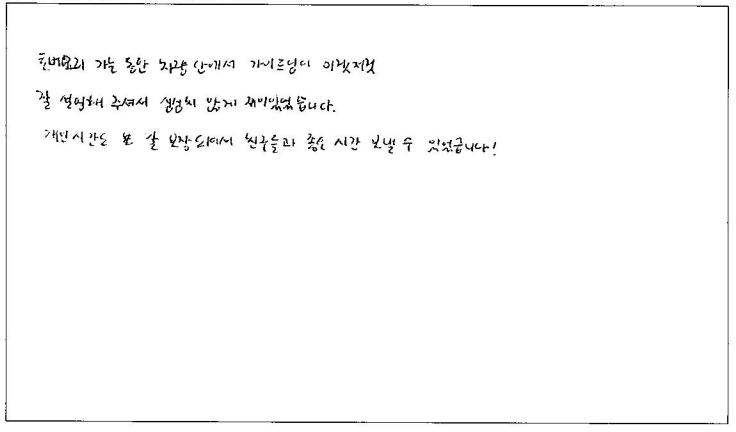 가는 동안 차량 안에서 가이드님이 이것저것
잘 설명해 주셔서 심심치 않게 재미있었습니다.
개인시간도 잘 보장되어서 친구들과 좋은 시간 보낼 수 있었습니다!